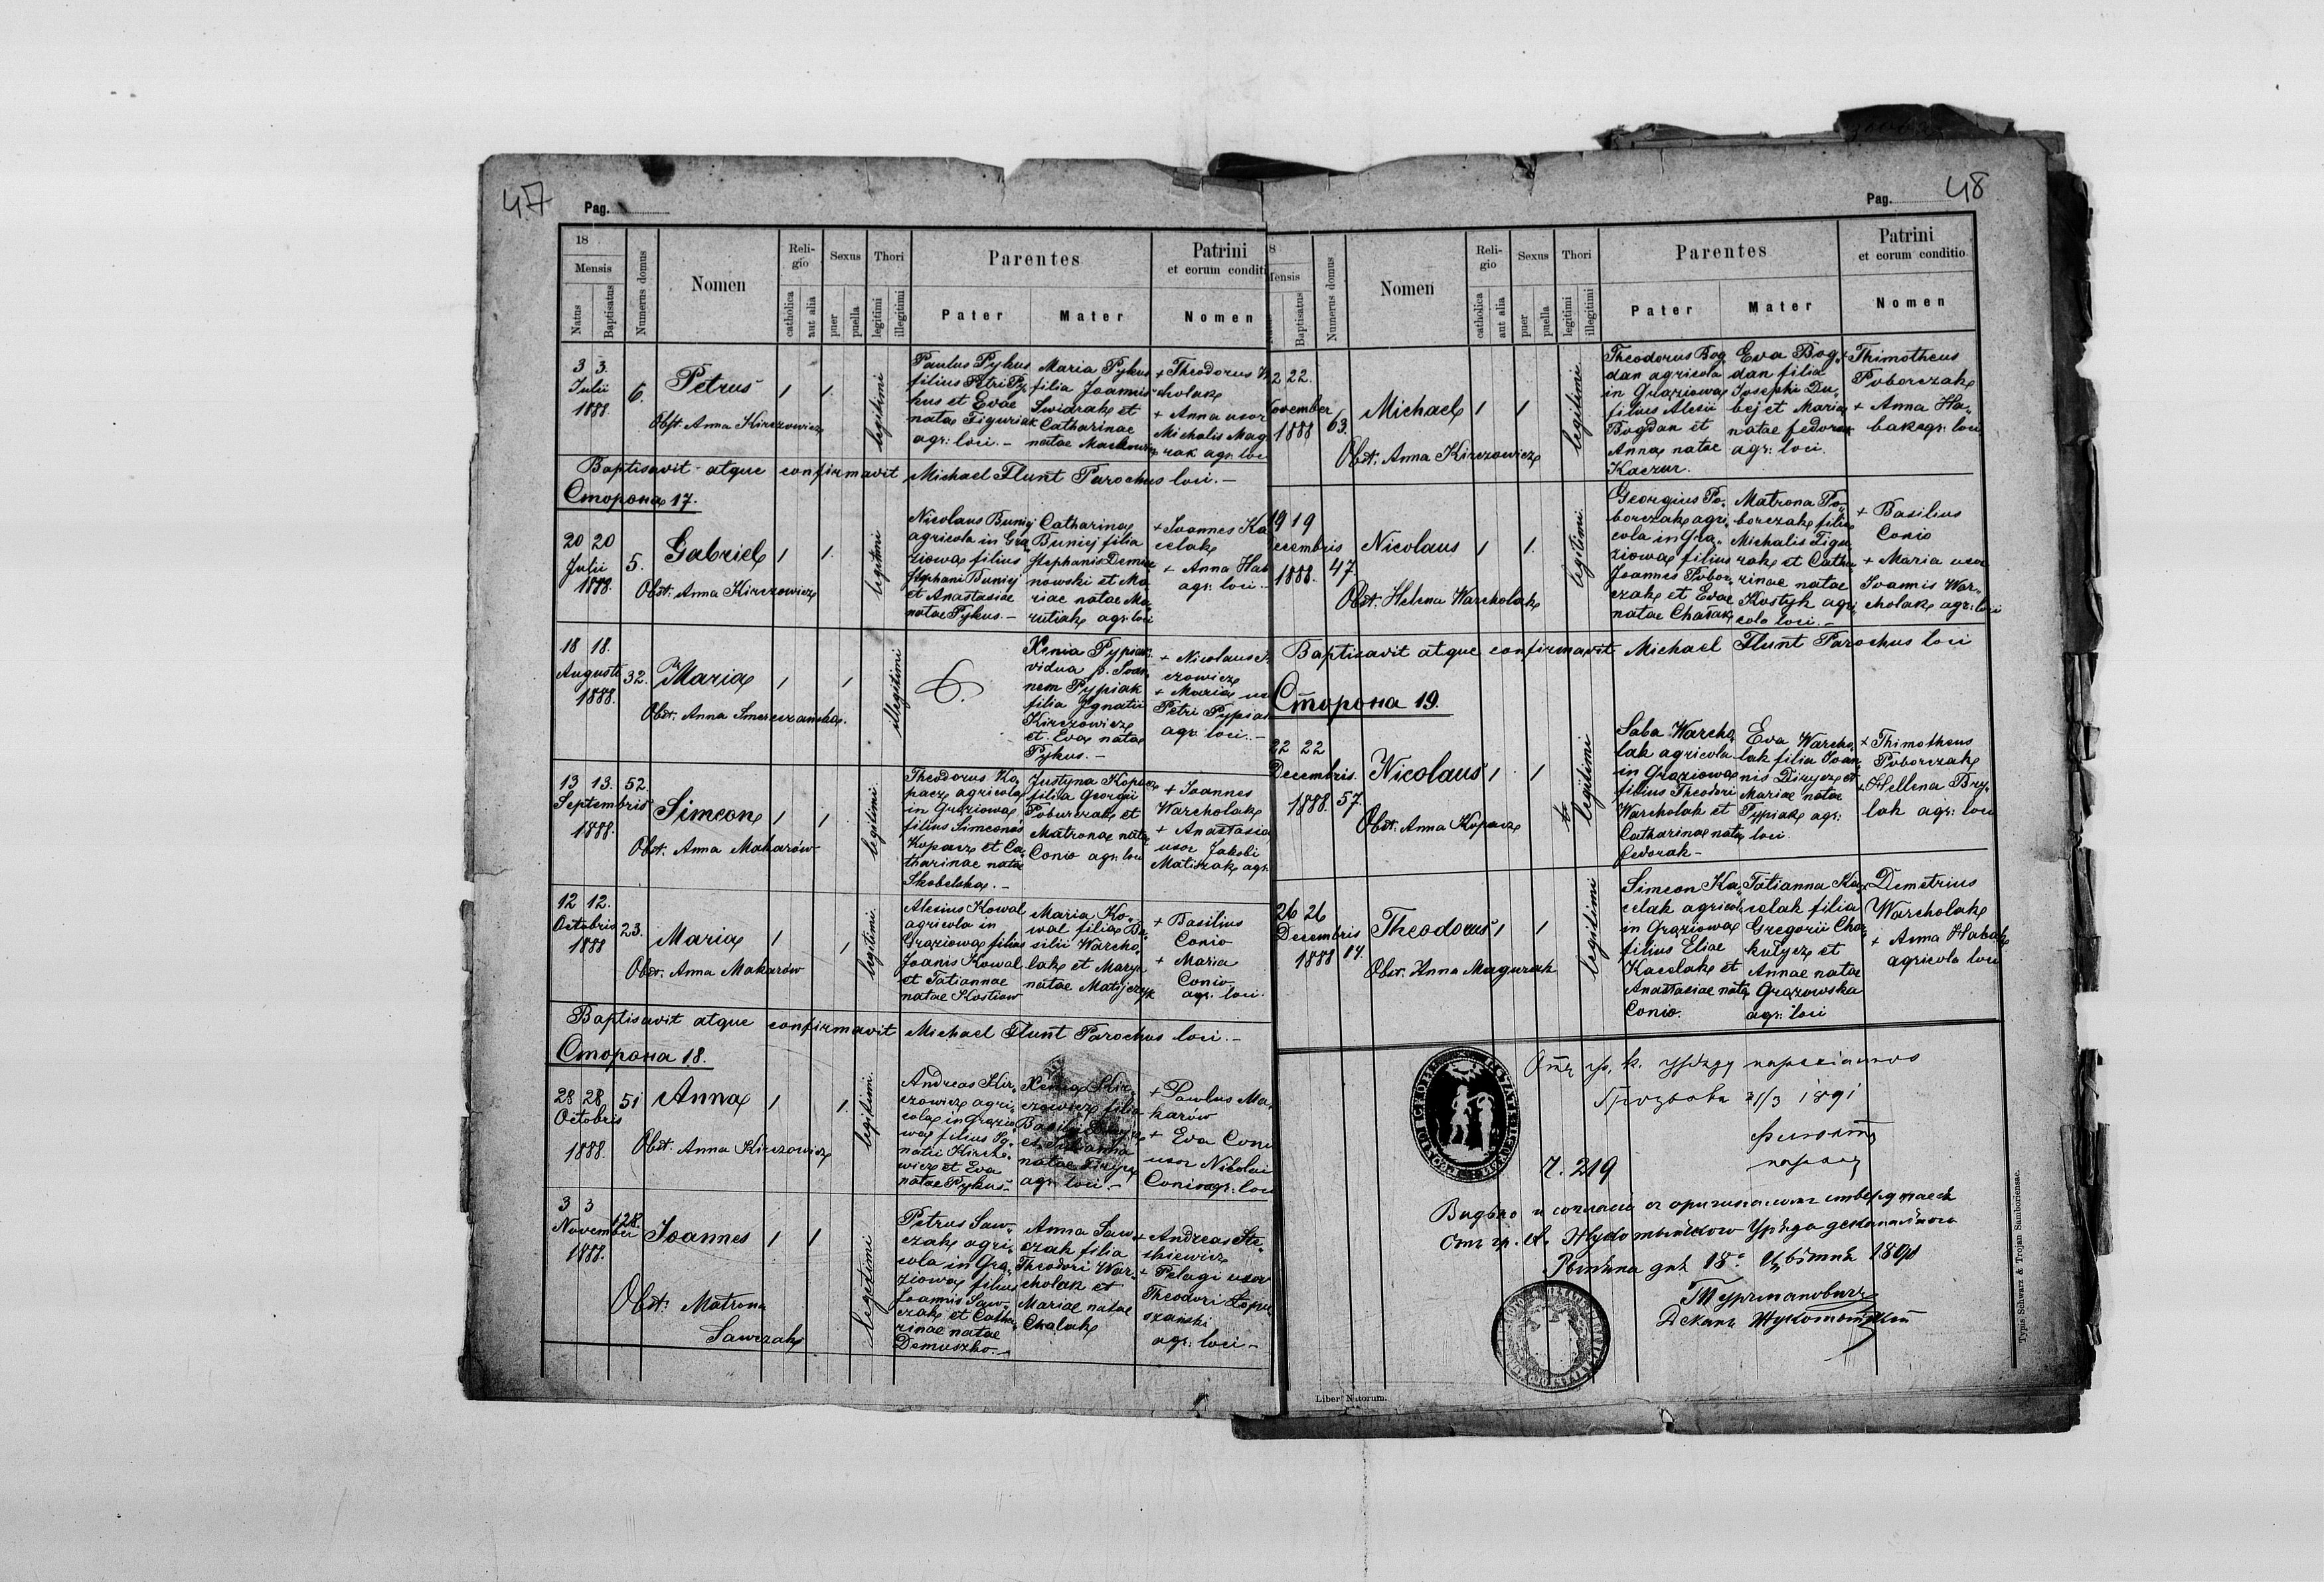 47
Pag.
18
Mensis
Natus
Baptisatus
Numerus domus
Nomen
Religio
catholica
aut alia
Sexus
puer
puella
Thori
legitimi
illegitimi
Parentes
Pater
Mater
Patrini
et eorum conditi
Nomen
3 3.
Julii
1888.
6.
Petrus
1
1.
Obst. Anna Kirczowicz
legitimi
Paulus Pykus
filius Petri Py
kus et Evae
natae Figuriak
agr: loci. -
Maria Pykus
filia Joannis
Swidrak et
Catharinae
natae
+ Theodorus
cholak
+ Anna uxor
Michalis Mag
rak agr. loci
Baptisavit atque confirmavit Michael Flunt Parochus loci. -
Сторона 17.
20 20
Julii
1888.
5.
Gabriel
1
1.
Obst. Anna Kirczowicz
legitimi
Nicolaus Bunij
agricola in Gra„
ziowa filius
Stephani Bunij
et Anastasiae
natae Pykus. -
Catharina
Bunij filia
Stephanis
nowski et Ma
riae natae Ma„
rutiak agr. loci
+ Joannes Ka
celak
+ Anna Hab
agr. loci -
18 18.
Augusti
1888.
32.
Maria
1
1
Obst. Anna
illegitimi
Xenia Pypiak
vidua p. Joan„
nem Pypiak
filia Ignatii
Kirczowicz
et Eva natae
Pykus. -
+ Nicolaus
czowicz
+ Maria
Petri Pypiak
agr. loci. -
13 13.
Septembris
1888.
52.
Simeon
1
1
Obst. Anna Makarów
legitimi
Theodorus Ko„
pacz agricola
in Graziowa
filius Simeonis
Kopacz et Ca„
tharinae natae
Skobelska. -
Justyna Kopacz
filia Georgii
Poborczak et
Matronae natae
Conio agr. loci
+ Joannes
Warcholak
+ Anastasia
uxor Jakobi
Matiszak agr.
12 12.
Octobris
1888
23.
Maria
1
1
Obst. Anna Makarów
legitimi.
Alexius Kowal
agricola in
Graziowa filius
Joanis Kowal
et Tatiannae
natae Kostiow
Maria Ko„
wal filia Ba„
silii Warcho„
lak et Marya
natae Matijczyk
+ Basilius
Conio
+ Maria
Conio
agr. loci.
Baptisavit atque confirmavit Michael Flunt Parochus loci. -
Сторона 18.
28 28
Octobris
1888.
51
Anna
1
1.
Obst. Anna Kirczowicz
legitimi.
Andreas Kir„
czowicz agri„
cola in Grazio
wa filius Ig„
natii Kircho„
wicz et Eva
natae Pykus -
Xenia Kir„
czowicz filia
Basilii
et
natae
agr. loci. -
+ Paulus Ma„
karów
+ Eva Conio
uxor Nicolai
Conio agr. loci
3 3
November
1888.
128.
Joannes
1
1
Obst. Matrona
Sawczak
legitimi
Petrus Saw„
czak agri„
cola in Gra„
ziowa filius
Joannis Saw„
czak et Catha„
rinae natae
Demuszko. -
Anna Saw„
czak filia
Theodori War„
cholak et
Mariae natae
Chalak
+ Andreas
+ Pelagi uxor
Theodori
agr. loci -
48
Pag.
8
Mensis
Baptisatus
Numerus domus
Nomen
Religio
catholica
aut alia
Sexus
puer
puella
Thori
legitimi
illegitimi
Parentes
Pater
Mater
Patrini
et eorum conditio
Nomen
2 22.
November
1888
63.
Michael
1
1
Obst. Anna Kirczowicz
legitimi.
Theodorus Bog„
dan agricola
in Graziowa
filius Alexii
Bogdan et
Anna natae
Kaczur.
Eva Bog„
dan filia
Josephi Du„
bej et Maria
natae fedorak
agr. loci.
+ Thimotheus
Poborczak
+ Anna Ha„
bak agr. loci
19 19
ecembris
1888.
47.
Nicolaus
1
1.
Obst. Helena Warcholak
legitimi.
Georgius Po„
borczak agri„
cola in Gra„
ziowa filius
Joannes Pobor„
czak et Evae
natae Chalak
Matrona Po„
borczak filia
Michalis Figu„
rak et Catha„
rinae natae
Kostyk agri„
cola loci. -
+ Basilius
Conio
+ Maria uxor
Joannis War„
cholak agr. loci
Baptisavit atque confirmavit Michael Flunt Parochus loci
Сторона 19.
22 22
Decembris.
1888.
57.
Nicolaus
1
1
Obst. Anna Kopacz
legitimi
Saba Warcho„
lak agricola
in Graziowa
filius Theodori
Warcholak et
Catharinae natae
fedorak -
Eva Warcho„
lak filia Joan„
nis Dizycz et
Mariae natae
Pypiak agr.
loci.
+ Thimotheus
Poborczak
+ Hellena Bry„
lak agr. loci
26 26
Decembris
1888
14.
Theodorus
1
1
Obst. Anna Magurak
legitimi
Simeon Ka„
celak agricola
in Graziowa
filius Eliae
Kacelak et
Anastasiae natae
Conio.
Tatianna Ka„
celak filia
Gregorii Cho„
kulycz et
Annae natae
Grązowska
agr. loci
+ Demetrius
Warcholak
+ Anna Habak
agricola loci
Отъ гр. к. уряду парохіального
Грозьова 21/3 1891
Флюнтъ
парохъ
Ч. 219
Видѣно и согласіе съ оригиналомъ стверджаесь
Отъ гр. к. Жукотыньского Уряда деканального
дня 18. Цвѣтня 1891
Деканъ Жукотыньскій
Liber Natorum.
Typis Schwarz & Trojan Samboriensae.